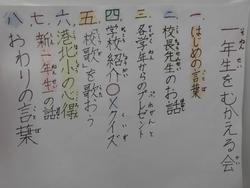 一年生をむかえる会
一、はじめの言葉
二、校長先生のお話
三、各学年からのプレゼント
四、学校紹介○×クイズ
五、校歌を歌おう
六、港北小の心得
七、新二年生の話
八、おわりの言葉